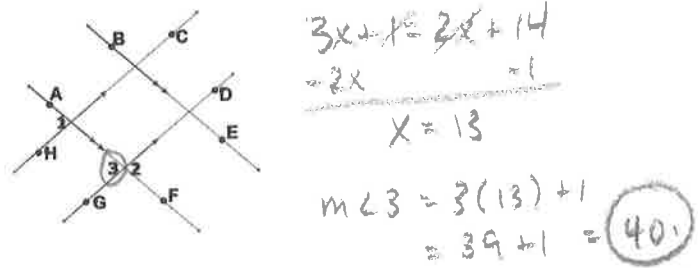 B
C
A
D
1
E
H
3 2
G
F
3x + 1 = 2x + 14
-2x -1
x = 13
m∠3 = 3(13) + 1
= 39 + 1 = 40.